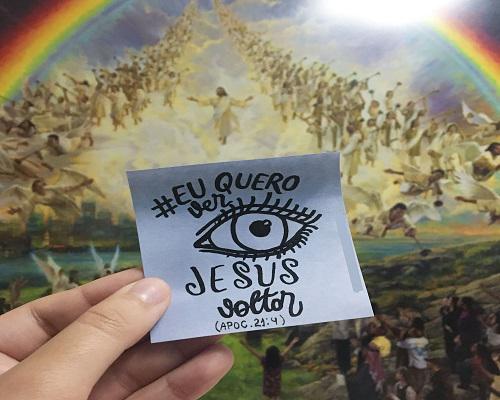 #EU QUERO
ver
JESUS
voltar
(APOC. 21:4)